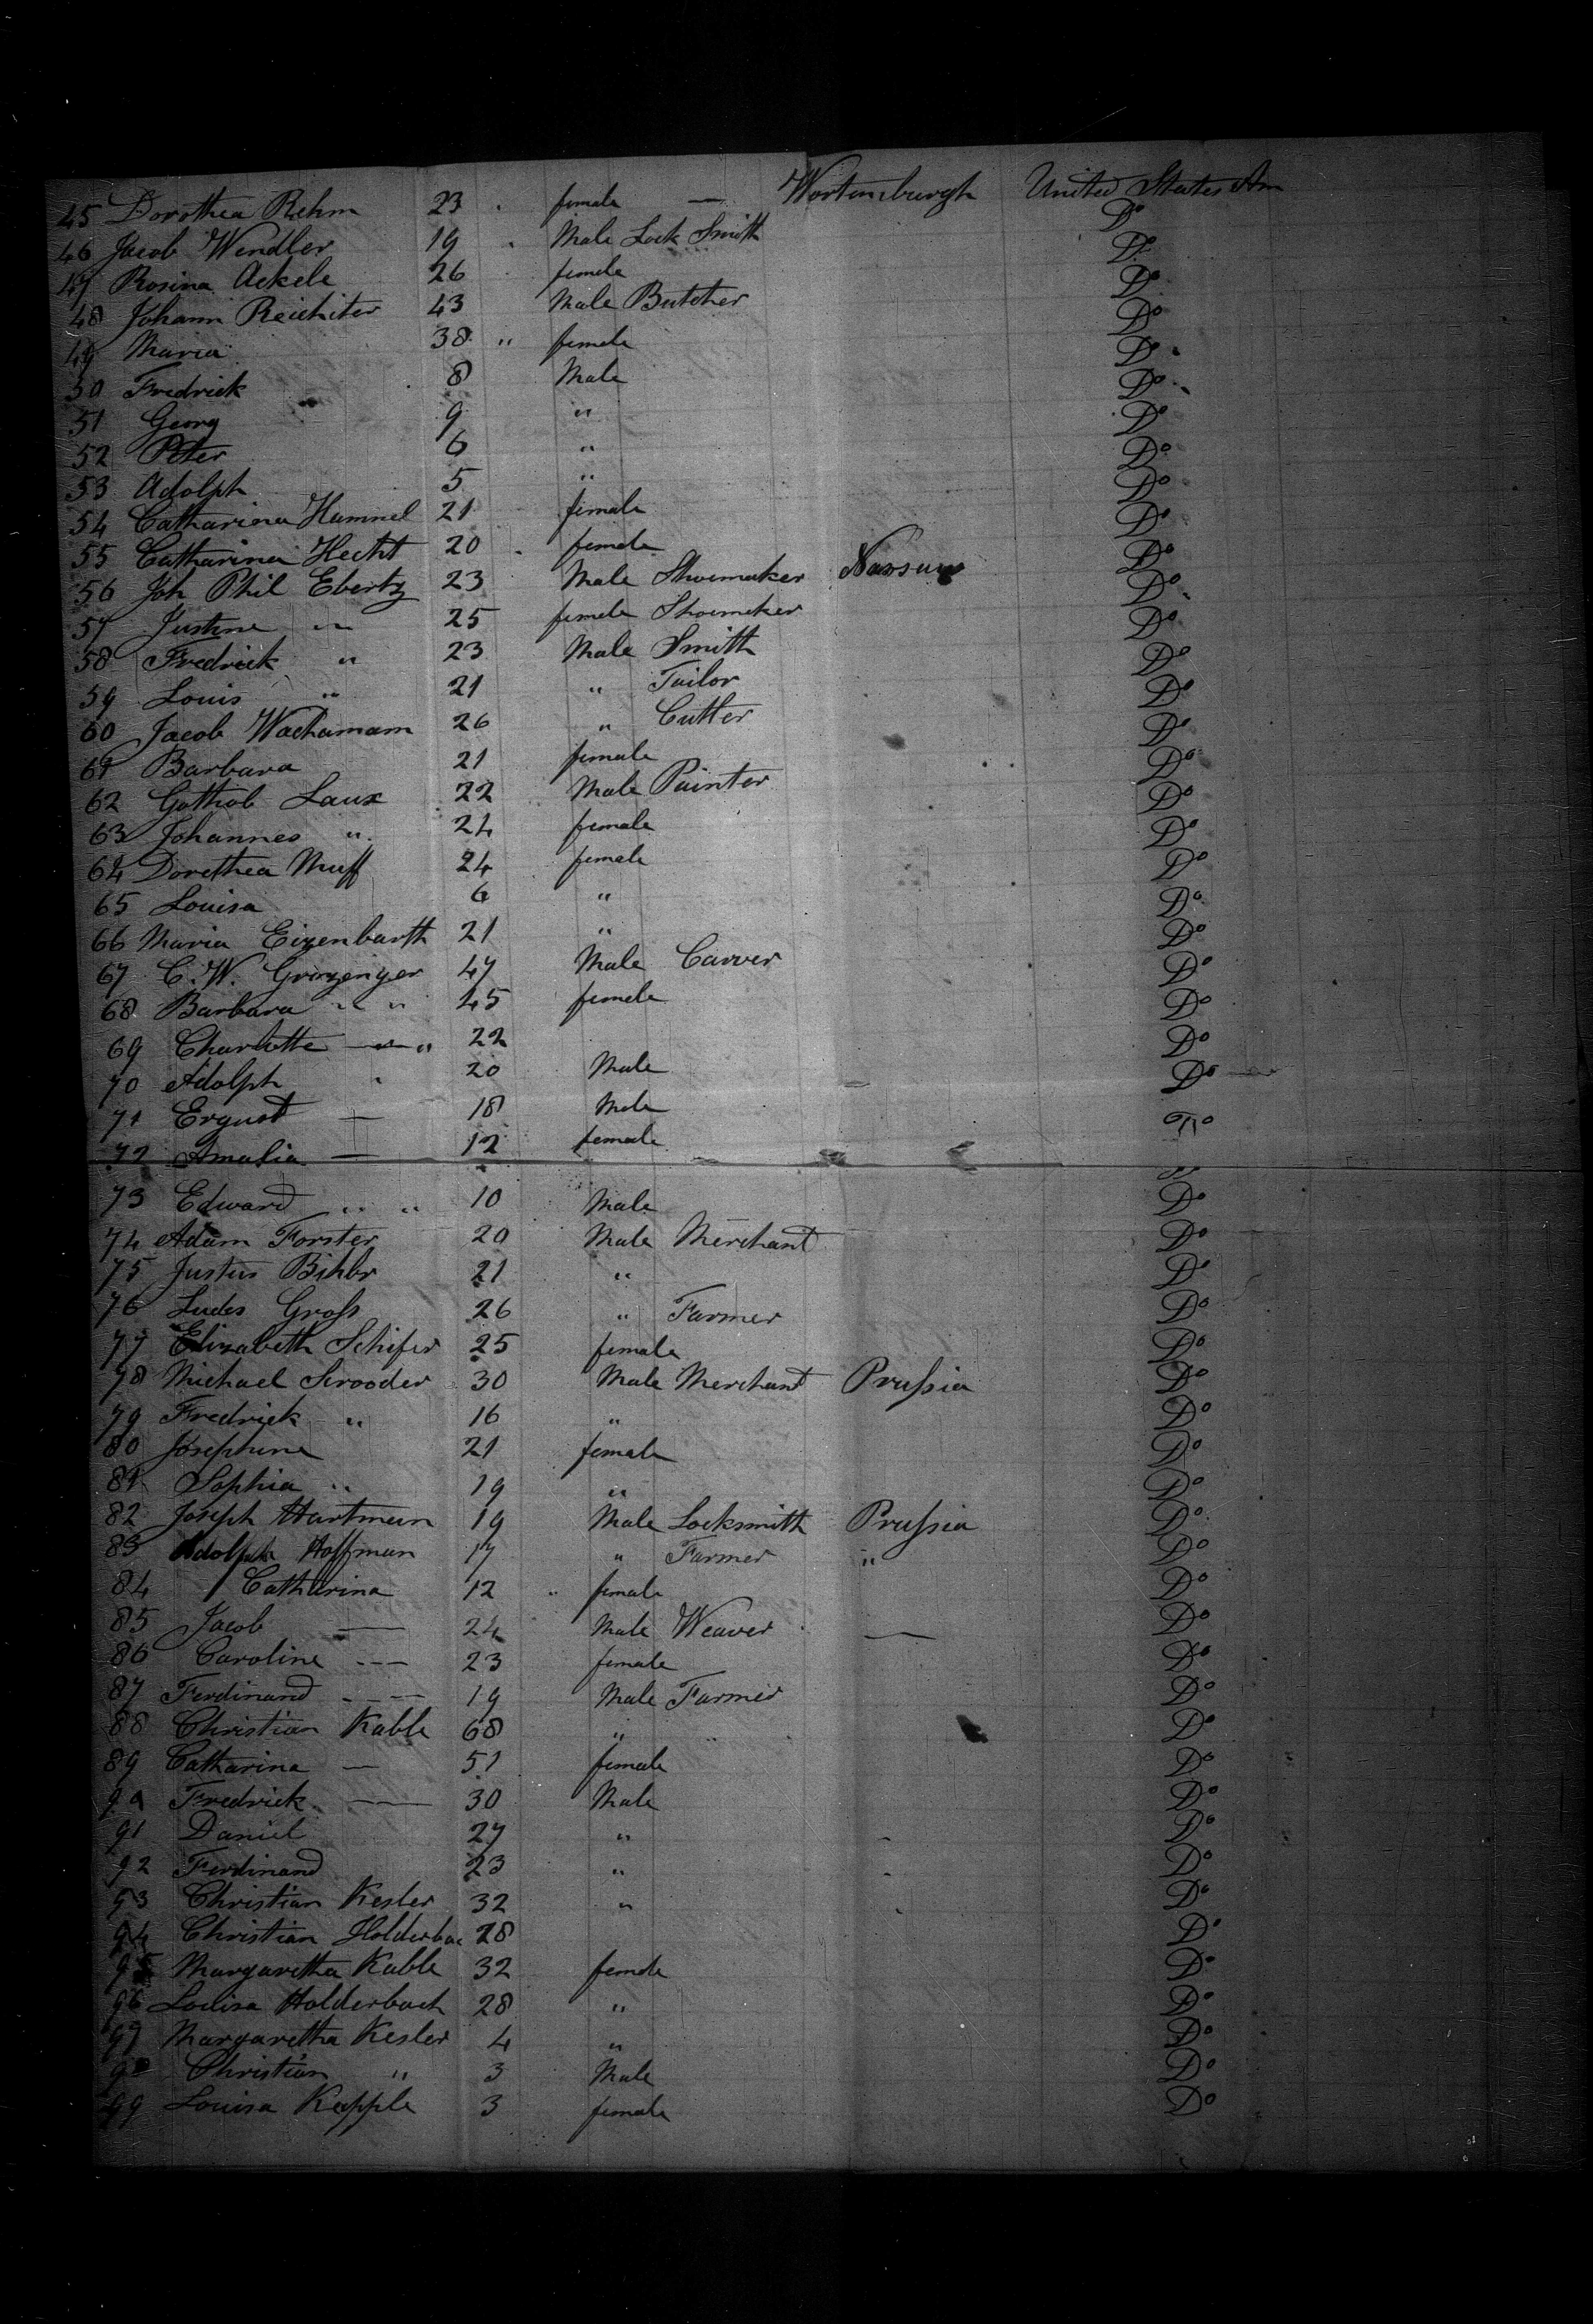 45 Dorothea Rehm 23 female — Wortemburgh United States Am
46 Jacob Wendler 19 Male Lock Smith Do
47 Rosina Ackele 26 female Do
48 Johann Reichiter 43 Male Butcher Do
49 Maria 38 " female Do
50 Fredrick 8 Male Do
51 Georg 9 " Do
52 Peter 6 " Do
53 Adolph 5 " Do
54 Catharina Hammel 21 female Do
55 Catharina Hecht 20 female Do
56 Joh Phil Ebertz 23 Male Shoemaker Nassau Do
57 Justine " 25 female Shoemaker Do
58 Fredrick " 23 Male Smith Do
59 Louis " 21 " Tailor Do
60 Jacob Wachamam 26 " Cutter Do
61 Barbara 21 female Do
62 Gothob Laux 22 Male Painter Do
63 Johannes " 24 female Do
64 Dorethea Muff 24 female Do
65 Louisa 6 " Do
66 Maria Eizenbarth 21 " Do
67 C. W. Grozenger 47 Male Carver Do
68 Barbara " " 45 female Do
69 Charlotte — " 22 Do
70 Adolph 20 Male Do
71 Ergust — 18 Male Do
72 Amalia — 12 female
73 Edward " " 10 Male Do
74 Adam Forster 20 Male Merchant Do
75 Justus Bihlr 21 " Do
76 Ludes Groſs 26 " Farmer Do
77 Elizabeth Schifer 25 female Do
78 Michael Srooder 30 Male Merchant Pruſsia Do
79 Fredrick " 16 " Do
80 Josephine 21 female Do
81 Sophia " 19 " Do
82 Joseph Hartman 19 Male Locksmith Pruſsia Do
83 Adolph Hoffman 17 " Farmer " Do
84 Catharina 12 female Do
85 Jacob — 24 Male Weaver — Do
86 Caroline --- 23 female Do
87 Ferdinand ---- 19 Male Farmer Do
88 Christian Kable 68 " Do
89 Catharina — 51 female Do
90 Fredrick — 30 Male Do
91 Daniel 27 " Do
92 Ferdinand 23 " Do
93 Christian Kesler 32 " Do
94 Christian Holderbac 28 Do
95 Margaretha Kable 32 female Do
96 Louisa Holderbach 28 " Do
97 Margaretha Kesler 4 " Do
98 Christian " 3 Male Do
99 Louisa Kapple 3 female Do